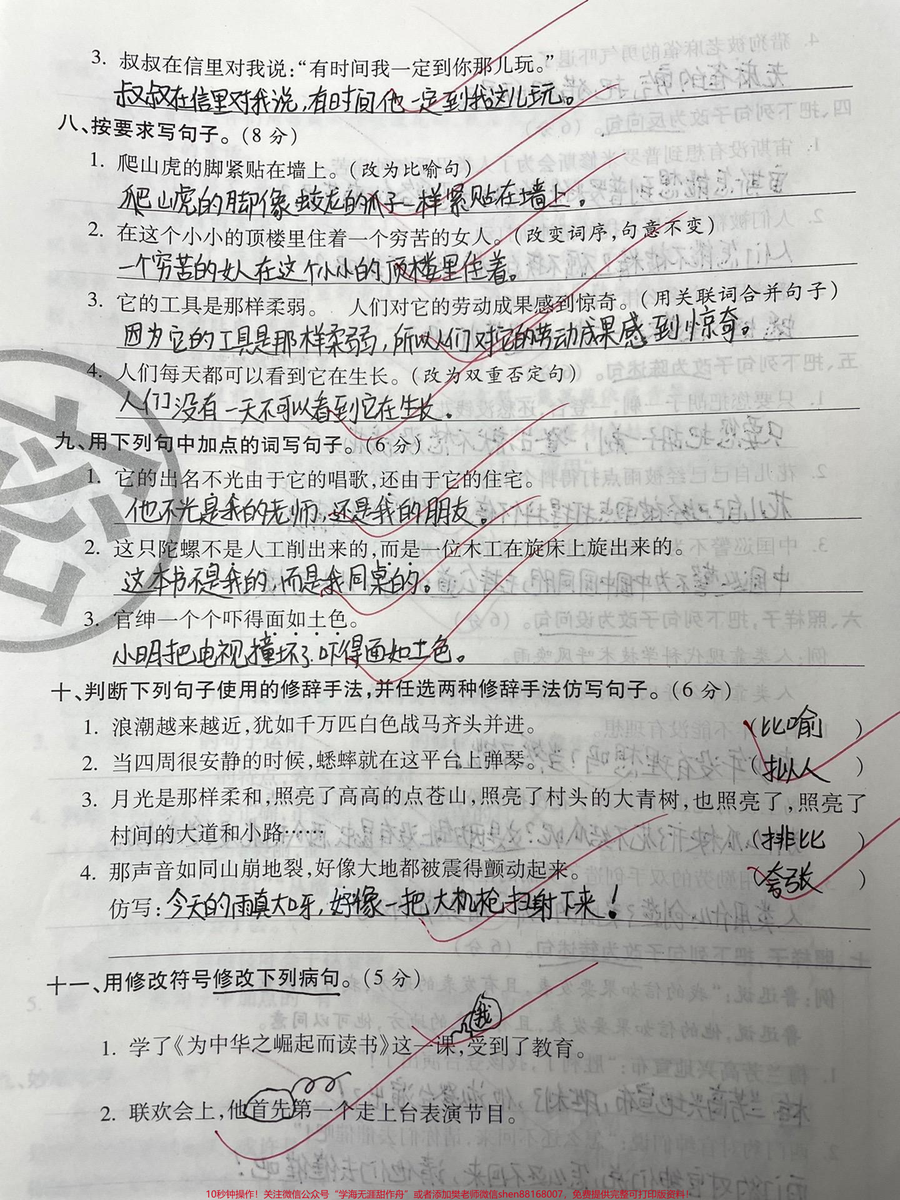 3. 叔叔在信里对我说:“有时间我一定到你那儿玩。”
叔叔在信里对我说,有时间他一定到我这儿玩。
八、按要求写句子。(8 分)
1. 爬山虎的脚紧贴在墙上。(改为比喻句)
爬山虎的脚像蛟龙的爪子一样紧贴在墙上。
2. 在这个小小的顶楼里住着一个穷苦的女人。(改变词序,句意不变)
一个穷苦的女人在这个小小的顶楼里住着。
3. 它的工具是那样柔弱。 人们对它的劳动成果感到惊奇。(用关联词合并句子)
因为它的工具是那样柔弱,所以人们对它的劳动成果感到惊奇。
4. 人们每天都可以看到它在生长。(改为双重否定句)
人们没有一天不可以看到它在生长。
九、用下列句中加点的词写句子。(6 分)
1. 它的出名不光由于它的唱歌,还由于它的住宅。
他不光是我的老师,还是我的朋友。
2. 这只陀螺不是人工削出来的,而是一位木工在旋床上旋出来的。
这本书不是我的,而是我同桌的。
3. 官绅一个个吓得面如土色。
小明把电视撞坏了,吓得面如土色。
十、判断下列句子使用的修辞手法,并任选两种修辞手法仿写句子。(6 分)
1. 浪潮越来越近,犹如千万匹白色战马齐头并进。 (比喻)
2. 当四周很安静的时候,蟋蟀就在这平台上弹琴。 (拟人)
3. 月光是那样柔和,照亮了高高的点苍山,照亮了村头的大青树,也照亮了,照亮了
村间的大道和小路…… (排比)
4. 那声音如同山崩地裂,好像大地都被震得颤动起来。 (夸张)
仿写:今天的雨真大呀,好像一把大机枪扫射下来!
十一、用修改符号修改下列病句。(5 分)
我
1. 学了《为中华之崛起而读书》这一课,受到了教育。
2. 联欢会上,他首先第一个走上台表演节目。
10秒钟操作!关注微信公众号“学海无涯甜作舟”或者添加樊老师微信shen88168007,免费提供完整可打印版资料!